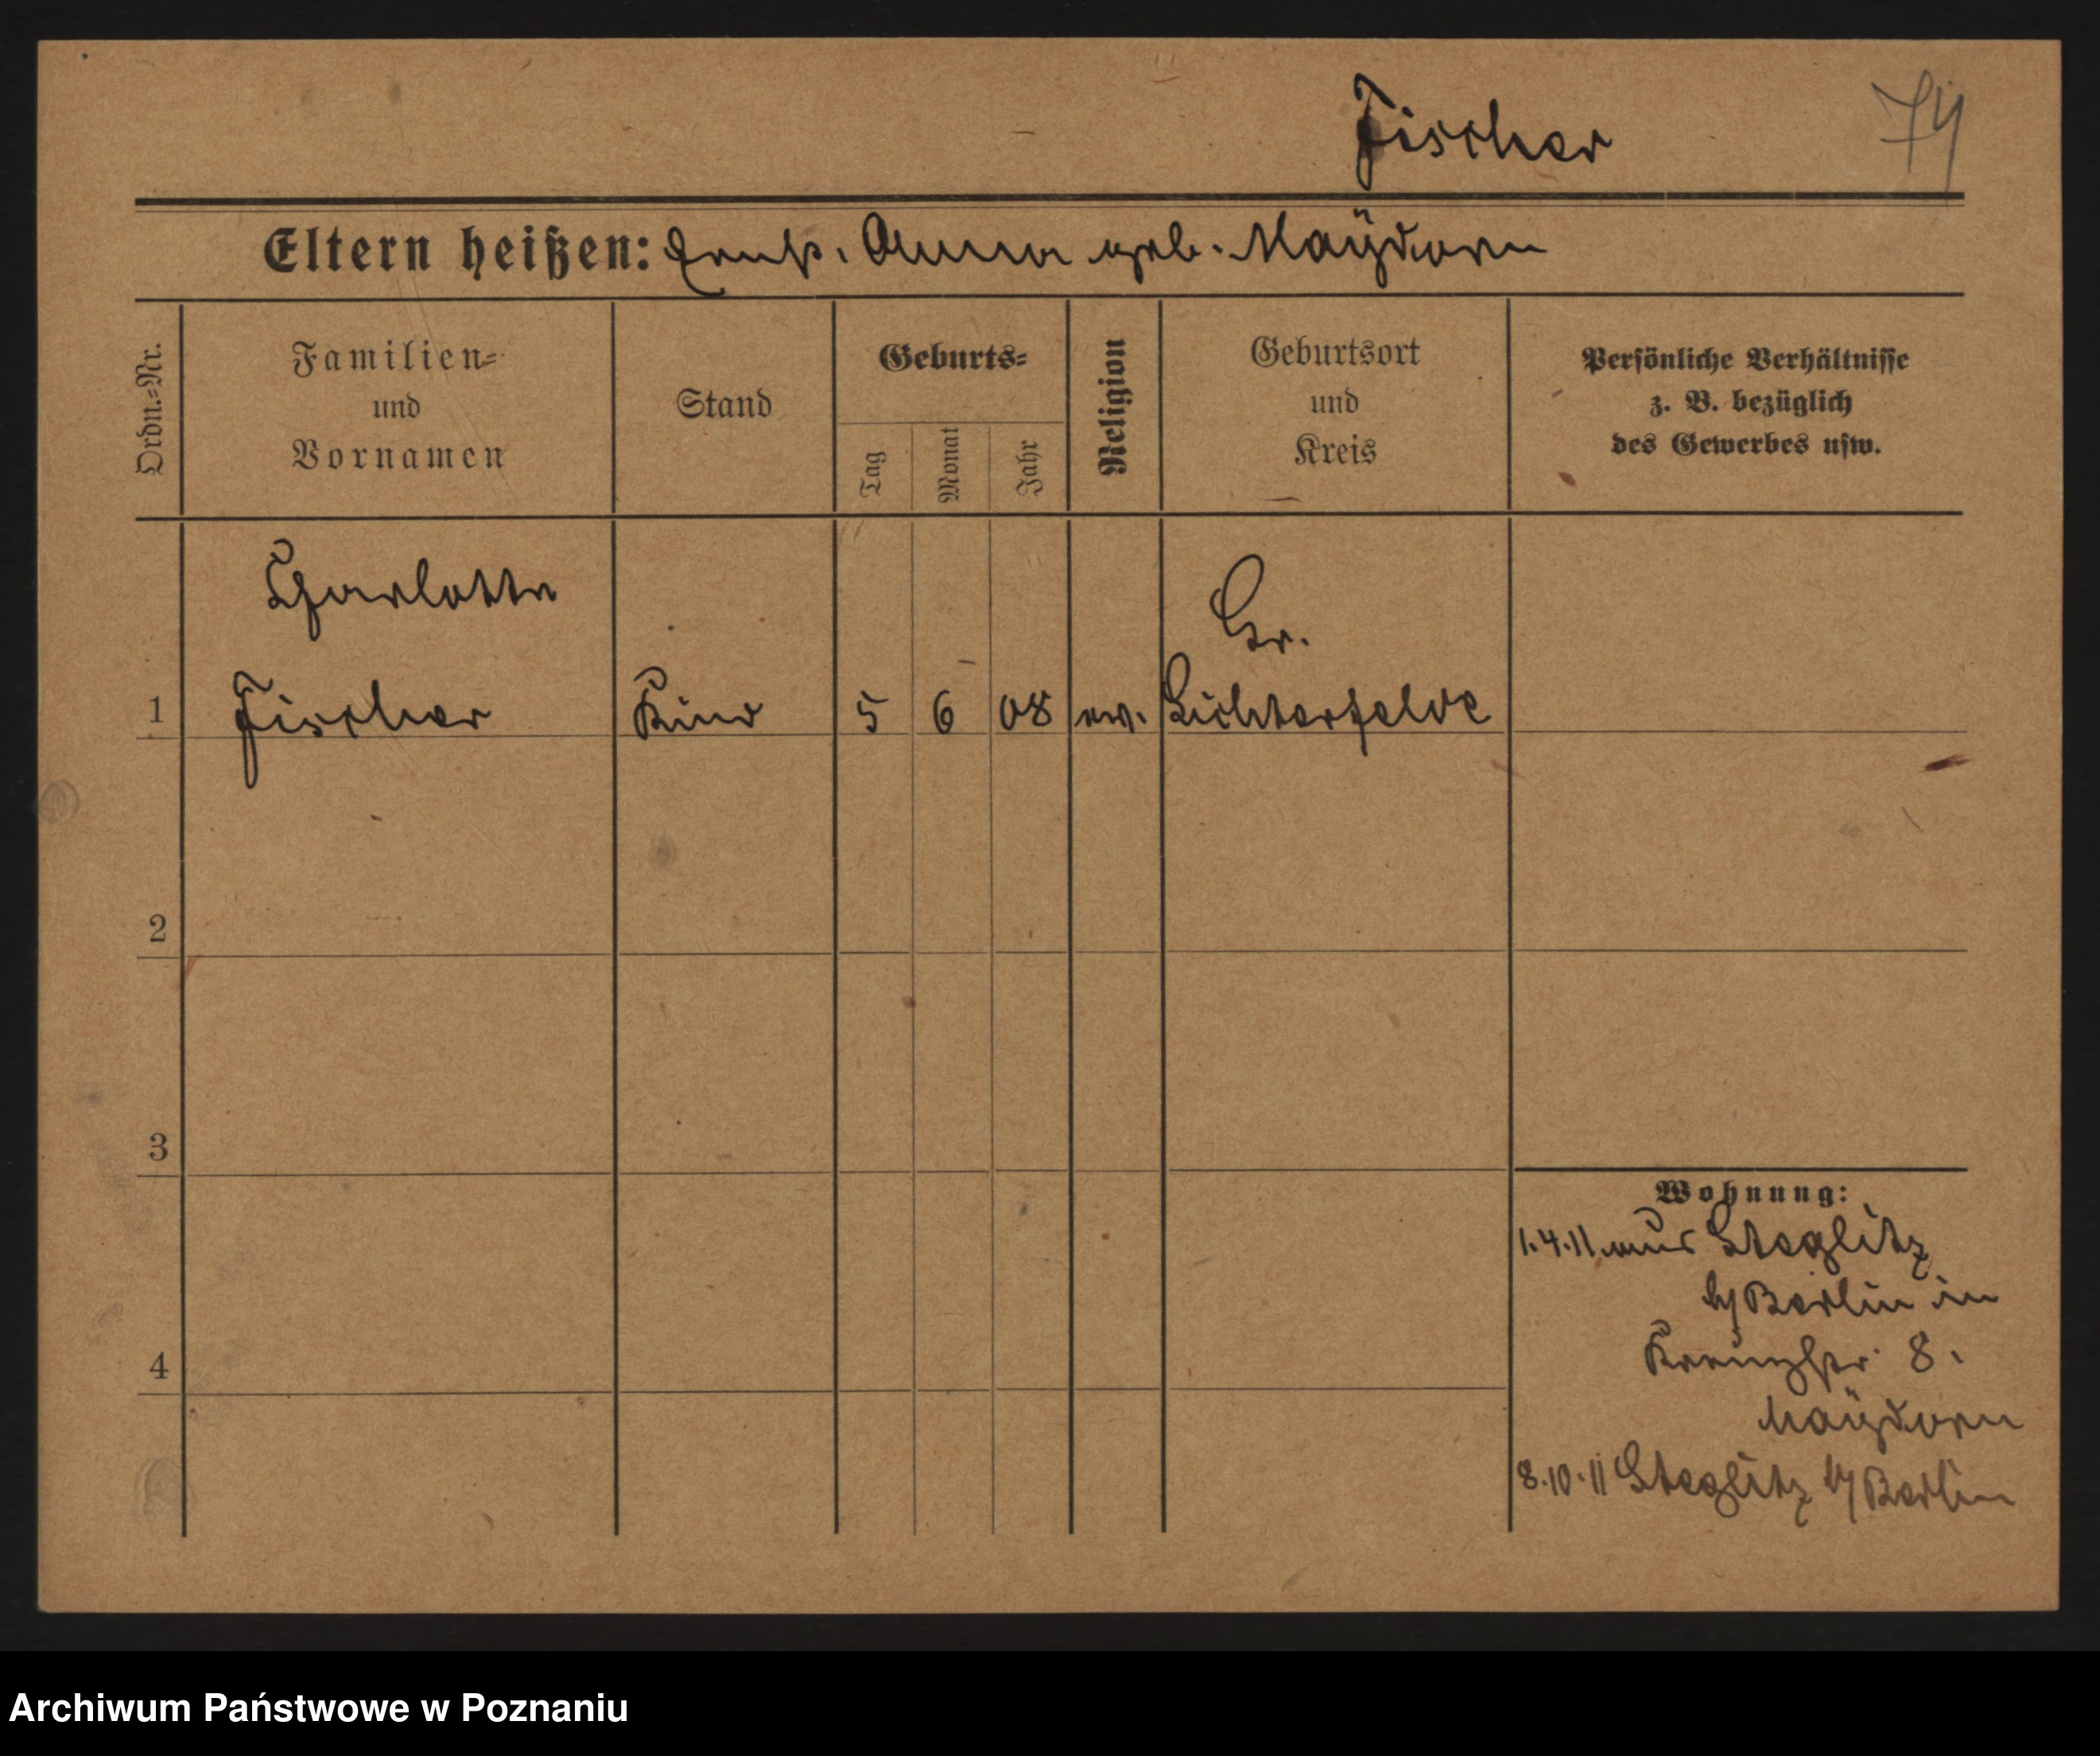 Fischer
74
Eltern heißen: Ernst. Anna geb. Maÿdorn
Ordn.=Nr.
Familien=
und
Vornamen
Stand
Geburts=
Tag
Monat
Jahr
Religion
Geburtsort
und
Kreis
Persönliche Verhältnisse
z. B. bezüglich
des Gewerbes usw.
Charlotte
Gr.
1 Fischer Kind 5 6 08 ev. Lichterfelde
2
3
Wohnung:
1.4.11. aus Steglitz
b/Berlin in
Kreuzstr. 8.
4
Maÿdorn
8.10.11 Steglitz b/Berlin
Archiwum Państwowe w Poznaniu